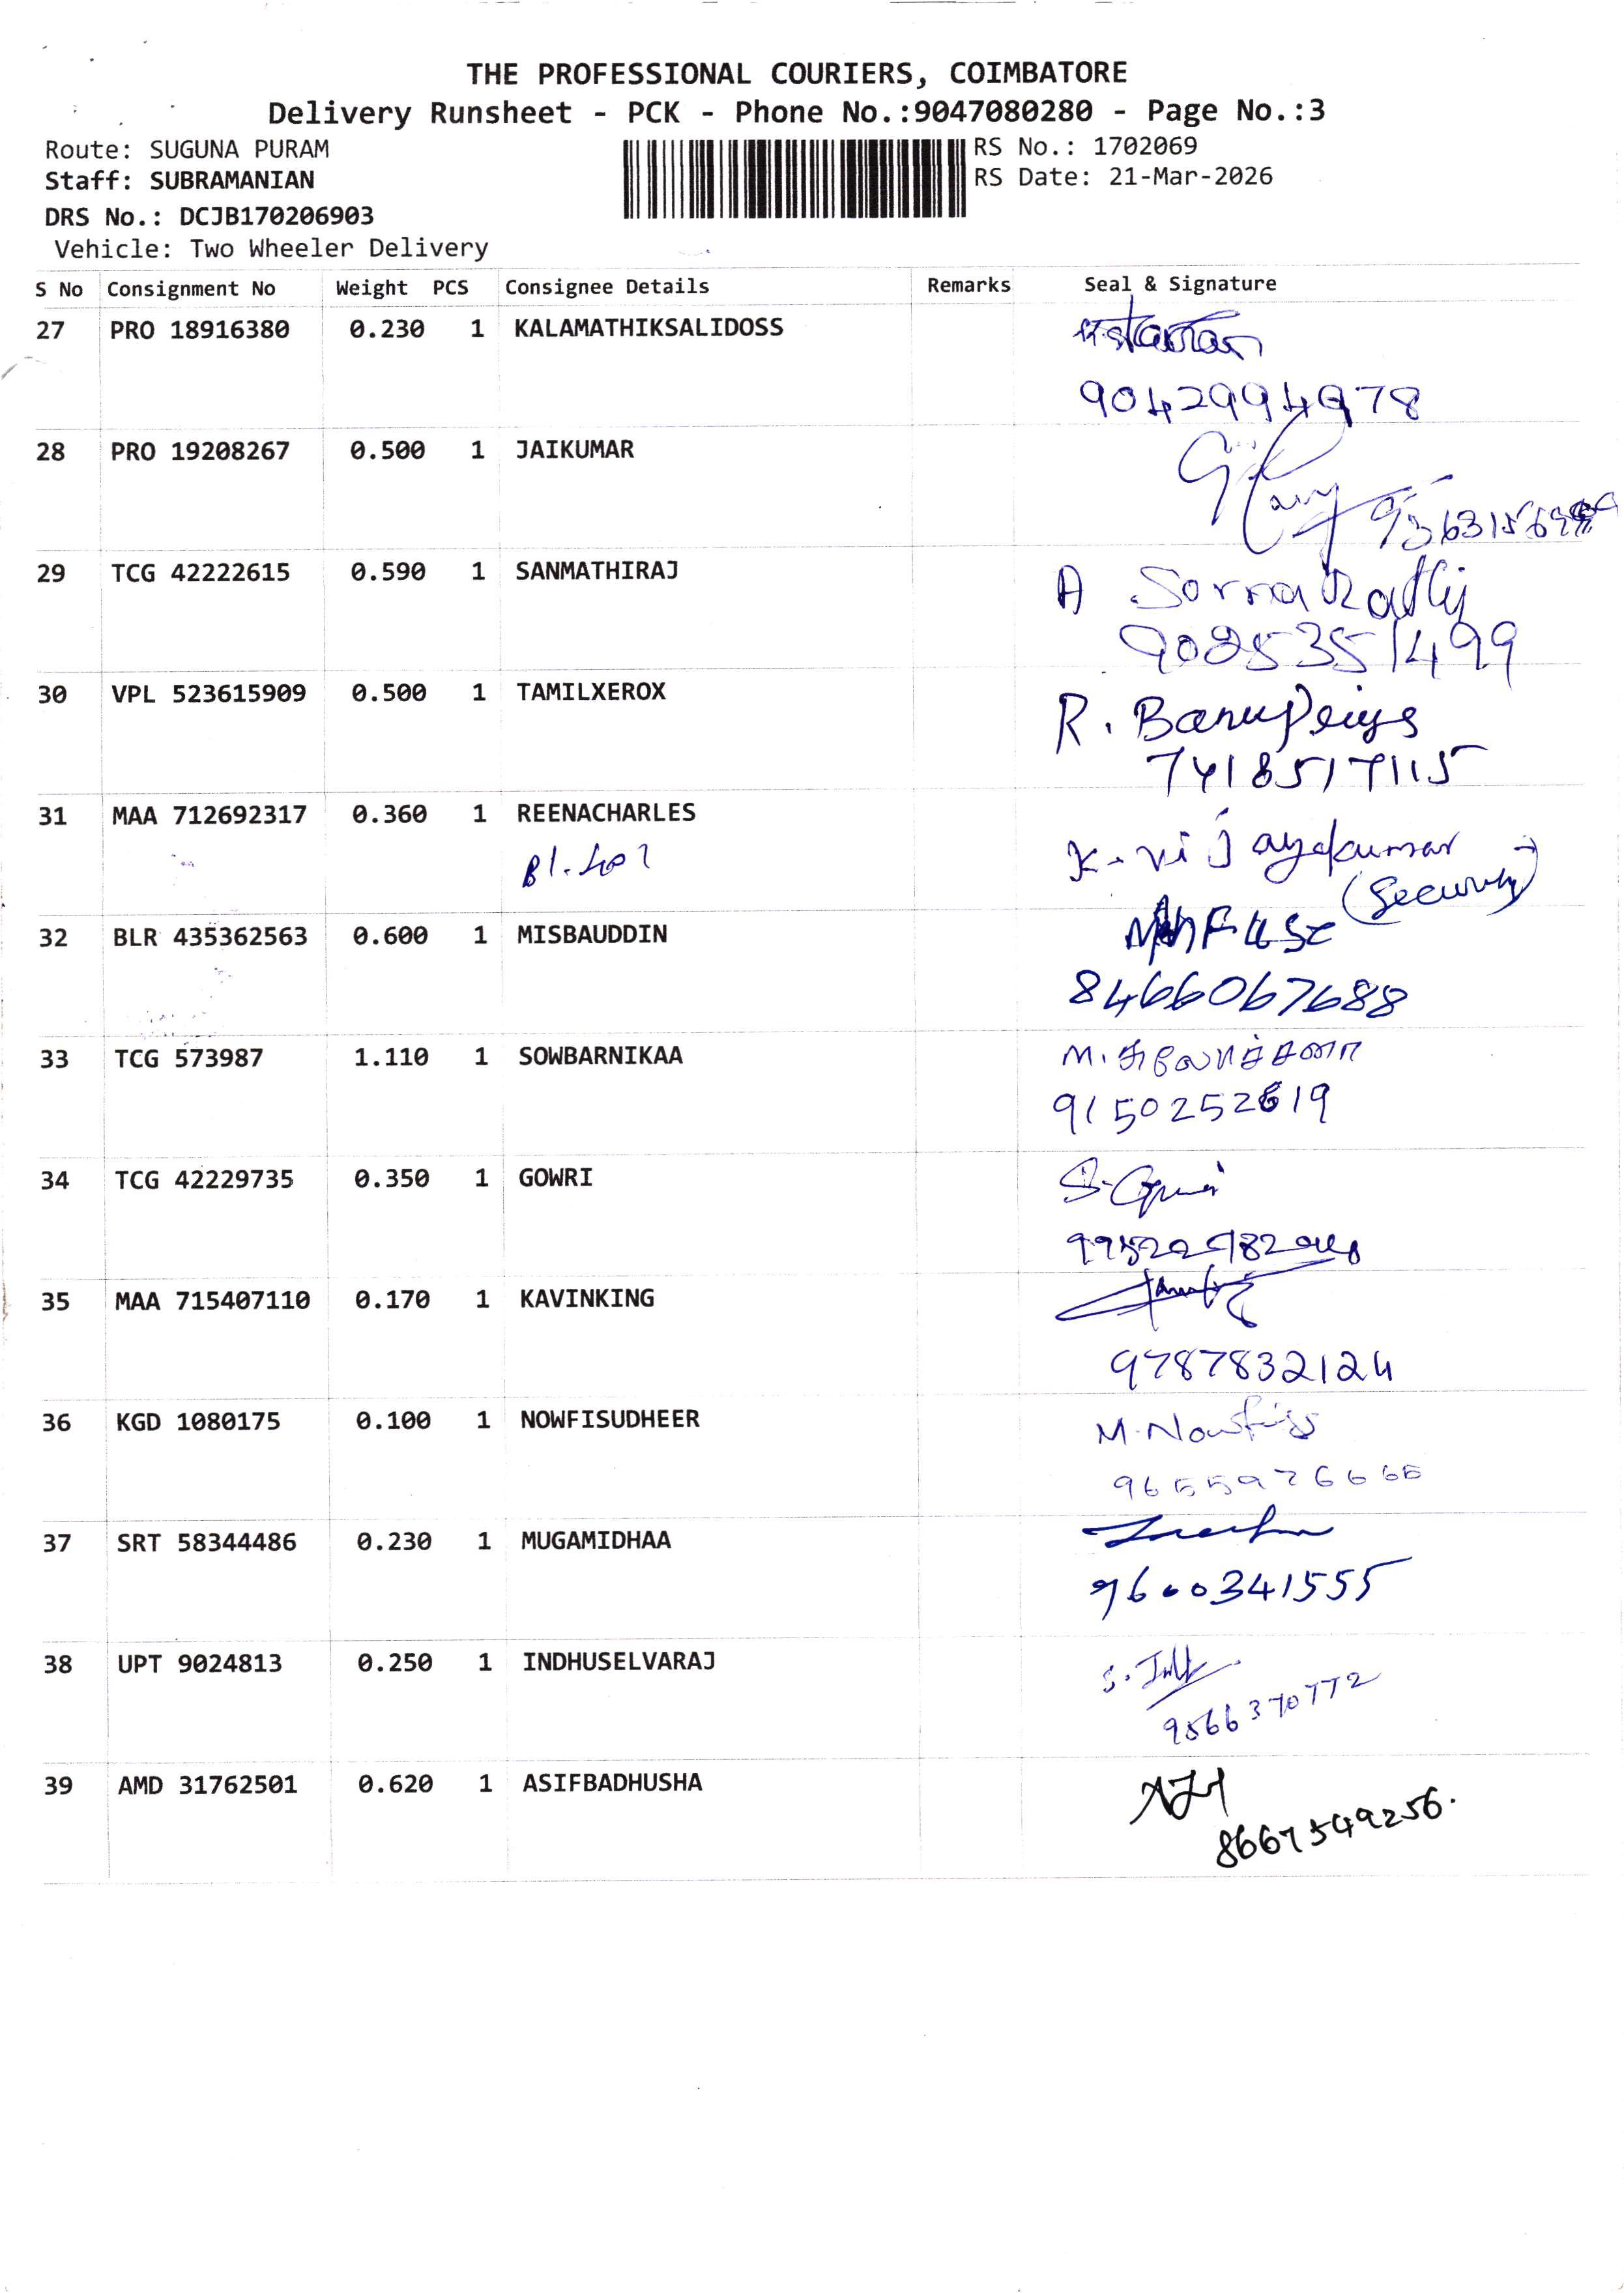 THE PROFESSIONAL COURIERS, COIMBATORE
Delivery Runsheet - PCK - Phone No.:9047080280 - Page No.:3
Route: SUGUNA PURAM
RS No.: 1702069
Staff: SUBRAMANIAN
RS Date: 21-Mar-2026
DRS No.: DCJB170206903
Vehicle: Two Wheeler Delivery
S No Consignment No Weight PCS Consignee Details Remarks Seal & Signature
27 PRO 18916380 0.230 1 KALAMATHIKSALIDOSS
28 PRO 19208267 0.500 1 JAIKUMAR
29 TCG 42222615 0.590 1 SANMATHIRAJ
A
30 VPL 523615909 0.500 1 TAMILXEROX
R. Banupriya
7418517115
31 MAA 712692317 0.360 1 REENACHARLES
K. Vijayakumar
(Security)
32 BLR 435362563 0.600 1 MISBAUDDIN
8466067688
33 TCG 573987 1.110 1 SOWBARNIKAA
M.
9150252619
34 TCG 42229735 0.350 1 GOWRI
S. Gowri
35 MAA 715407110 0.170 1 KAVINKING
9787832124
36 KGD 1080175 0.100 1 NOWFISUDHEER
M. Nowfiss
9655976666
37 SRT 58344486 0.230 1 MUGAMIDHAA
9600341555
38 UPT 9024813 0.250 1 INDHUSELVARAJ
9566370772
39 AMD 31762501 0.620 1 ASIFBADHUSHA
8667549256.